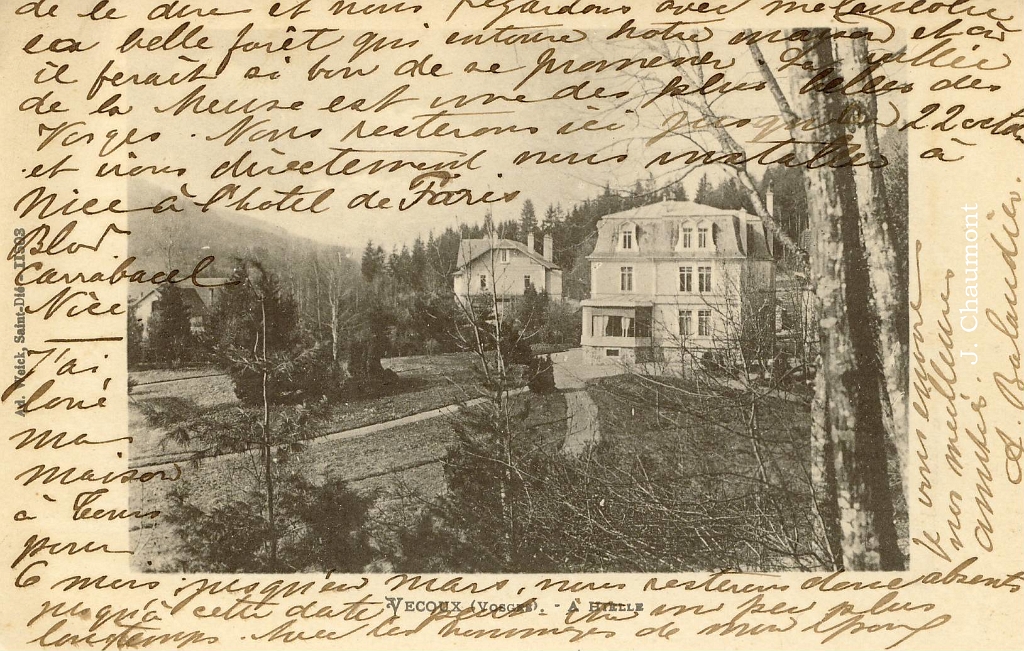 de le dire et nous regardons avec mélancolie
la belle forêt qui entoure notre maison et où
il ferait si bon de se promener. La vallée
de la Meuse est une des plus belles des
Vosges. Nous resterons ici jusqu'au 22 octob
et irons directement nous installer à
Nice à l'hotel de Paris
Blod
Carrabacel
Nice
J'ai
loué
ma
maison
à
pour
6 mois jusqu'en mars, nous resterons donc absents
jusqu'à cette date peut être un peu plus
longtemps. Avec les hommages de mon Epoux
Je vous envoie
mes meilleures
amitiés.
Balandier.
Ad. Weick, Saint-Dié 11903
J. Chaumont
VECOUX (VOSGES). - A HIELLE